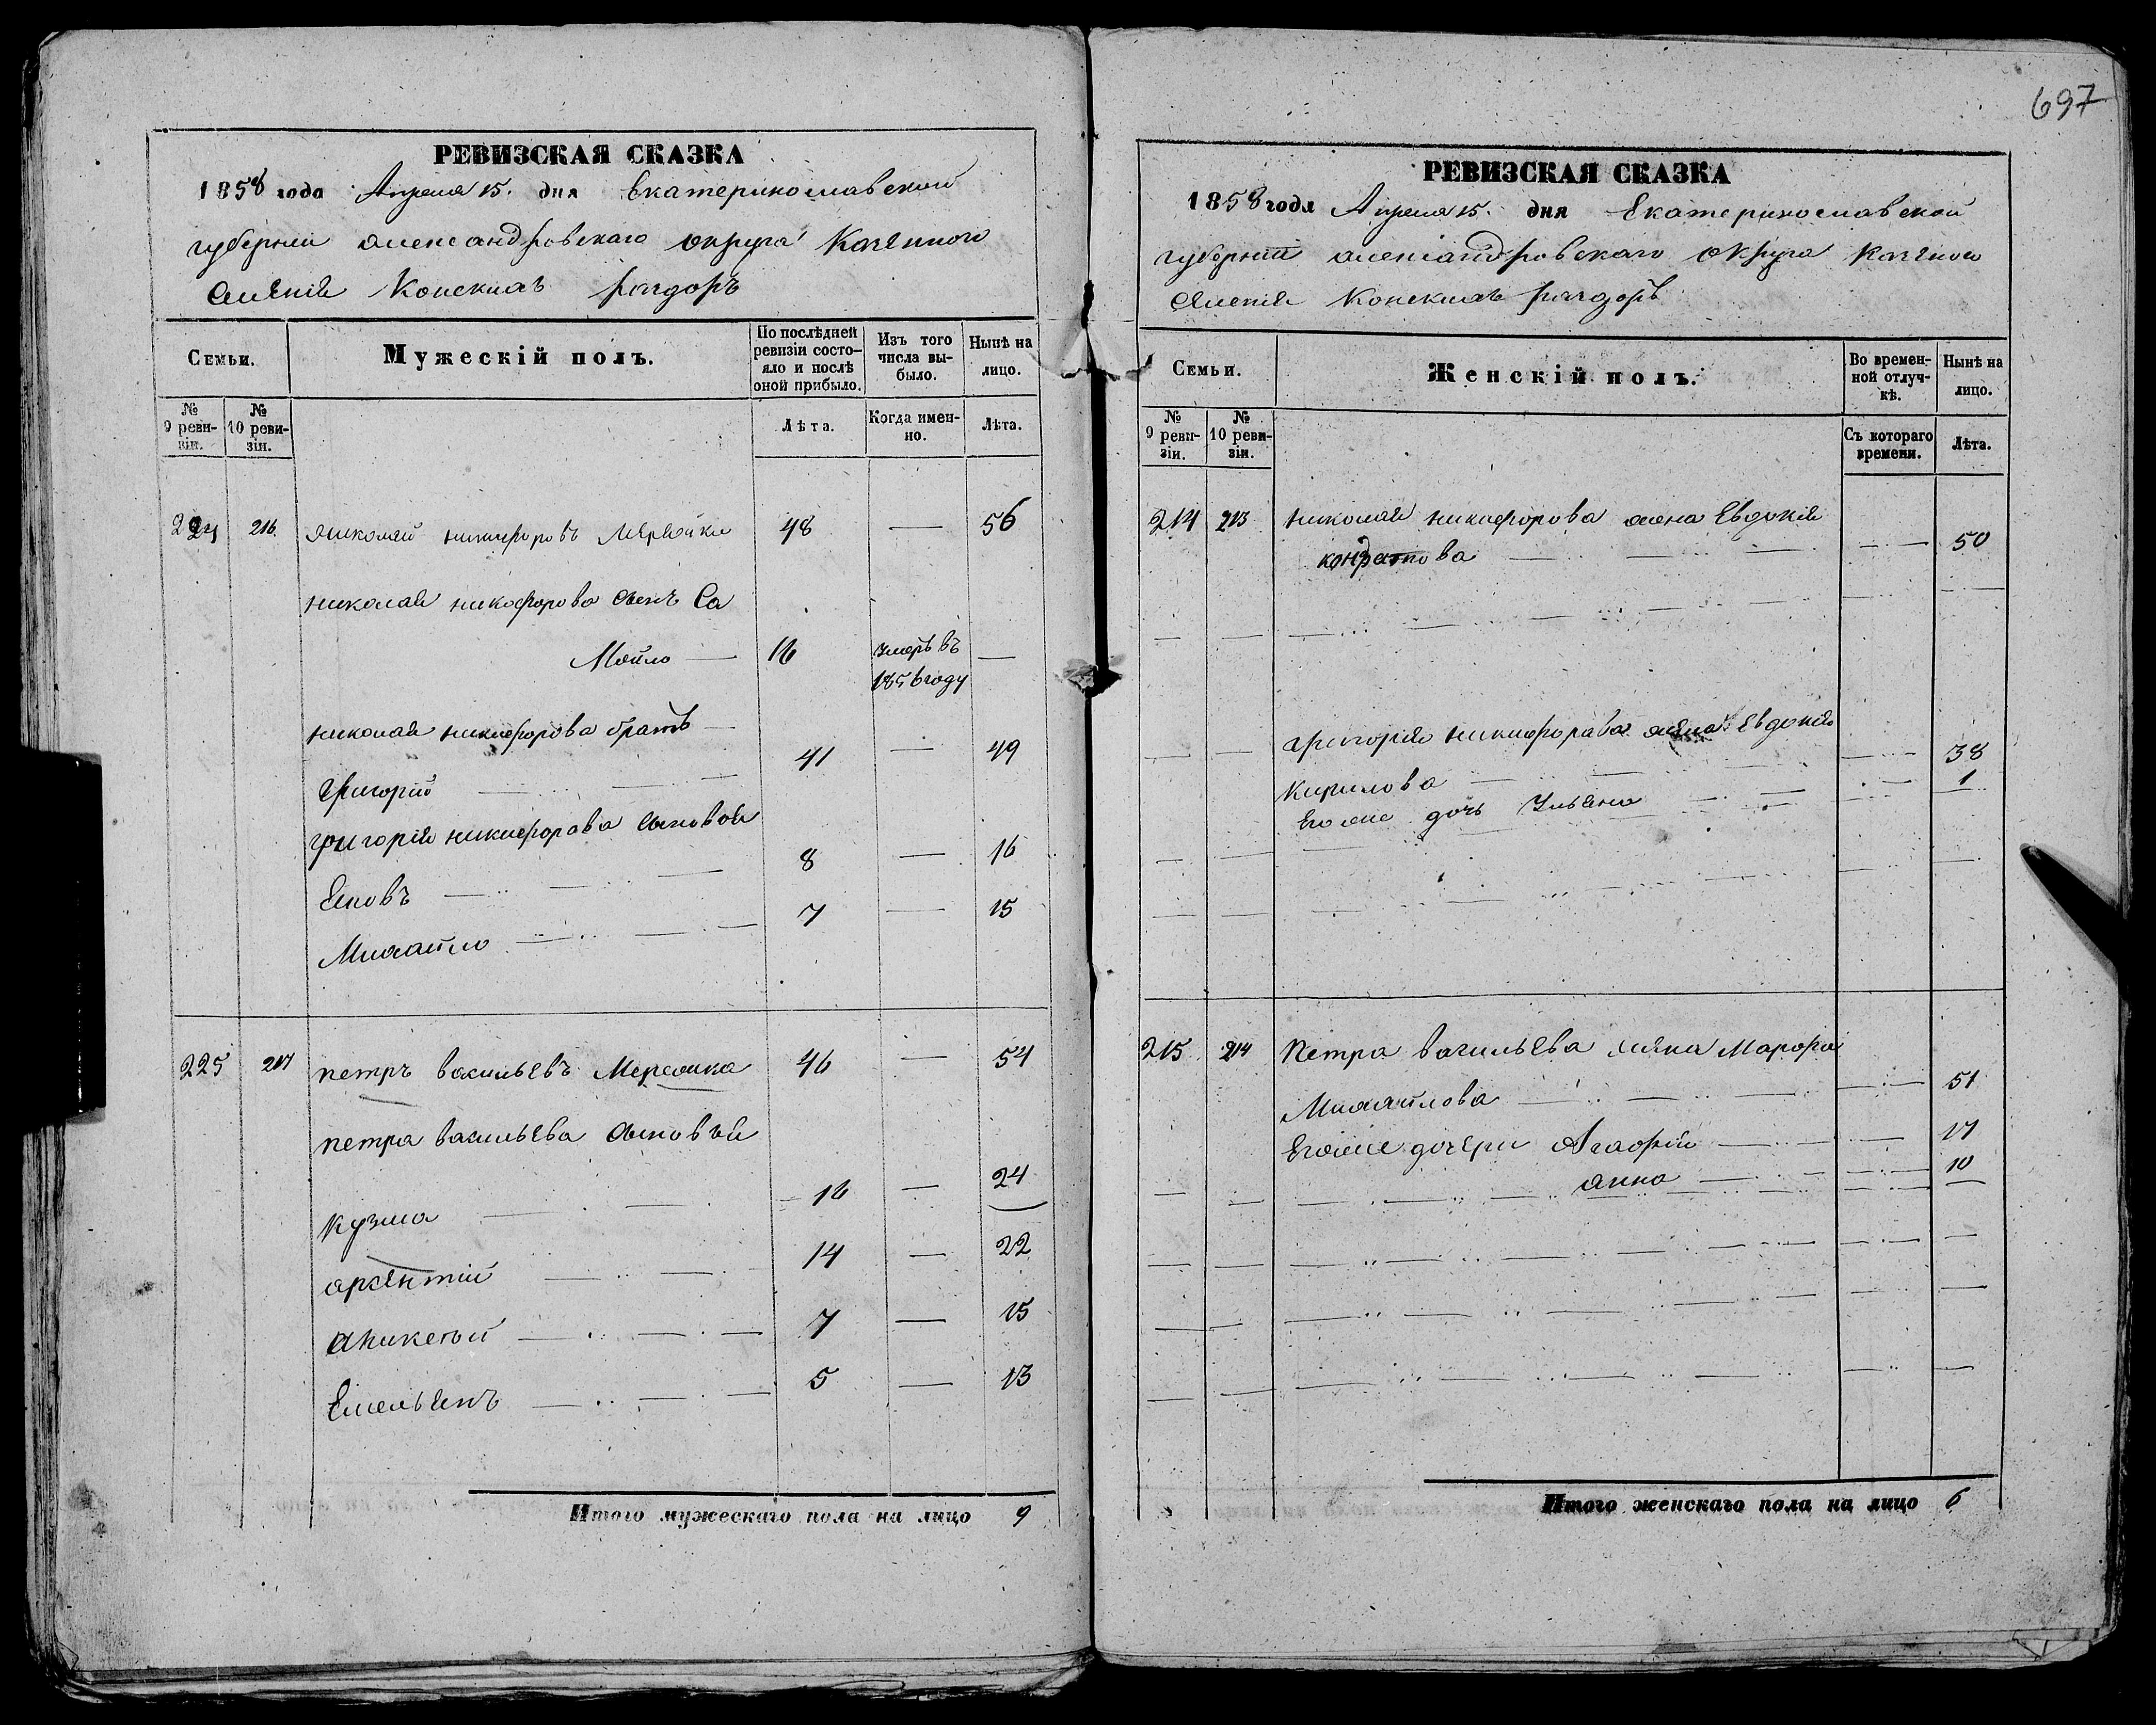 697
РЕВИЗСКАЯ СКАЗКА
1858 года Апреля 15. дня Екатеринославской
губернии александровскаго округа Казенного
селенія Конскихъ раздоръ
Семьи.
Мужескій полъ.
По послѣдней ревизіи состояло и послѣ оной прибыло.
Изъ того числа выбыло.
Нынѣ на лицо.
№ 9 ревизіи.
№ 10 ревизіи.
Лѣта.
Когда именно.
Лѣта.
224 216 николай никифоровъ 48 — 56
николая никифорова сынъ Са
Мойло — 16 умеръ въ —
1856 году
николая никифорова братъ —
григорій 41 — 49
григорія никифорова сыновья
Яковъ 8 — 16
Михайло 7 — 15
225 217 петръ васильевъ Мережка 46 — 54
петра васильева сыновьй
кузма 16 — 24
арсентій 14 — 22
аникей 7 — 15
Емельянъ 5 — 13
Итого мужескаго пола на лицо 9
РЕВИЗСКАЯ СКАЗКА
1858 года Апреля 15. дня Екатеринославской
губерніи александровскаго округа казеного
селенія Конскихъ раздоръ
Семьи.
Женскій полъ.
Во временной отлучкѣ.
Нынѣ на лицо.
№ 9 ревизіи.
№ 10 ревизіи.
Съ котораго времени.
Лѣта.
214 213 николая никифорова жена Евдокія
кондратова — 50
григорія никифорова жена Евдокія
кирилова — 38
Егоже дочь Ульяна 1
215 214 петра васильева жена Марфа
Михайлова — 51
Егоже дочери Агафія — 17
анна — 10
Итого женскаго пола на лицо 6